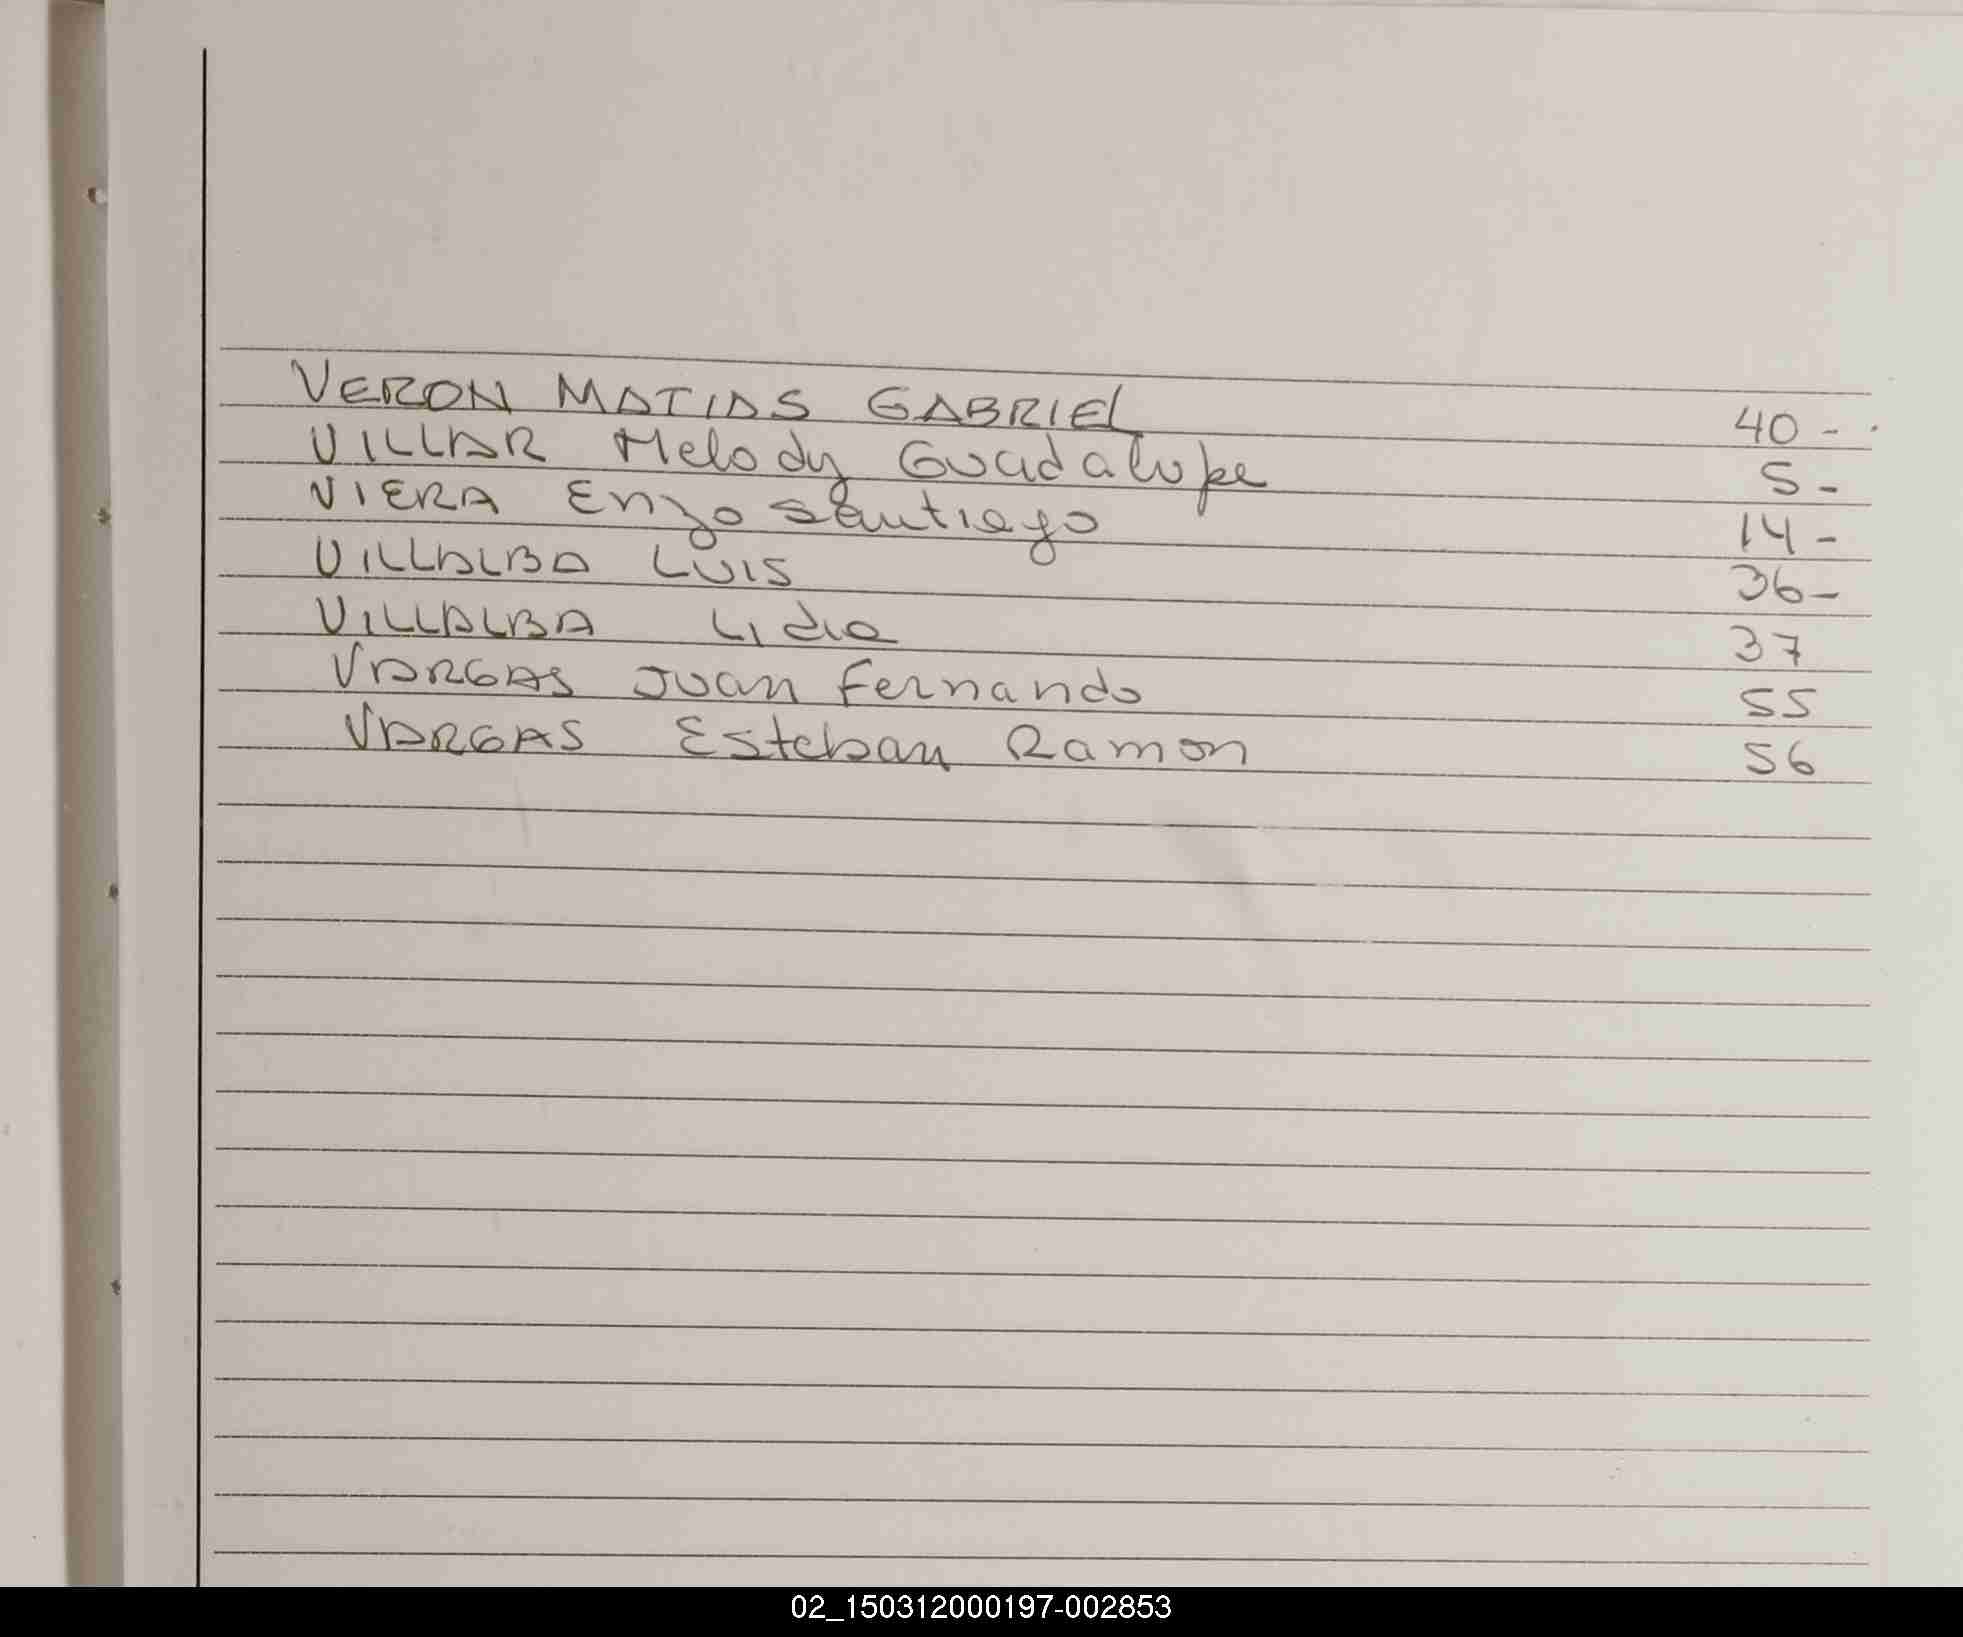 VERON MATIAS GABRIEL 40 - .
VILLAR Melody Guadalupe 5 -
VIERA Enzo Santiago 14 -
VILLALBA LUIS 36 -
VILLALBA Lidia 37
VARGAS Juan Fernando 55
VARGAS Esteban Ramon 56
02_150312000197-002853